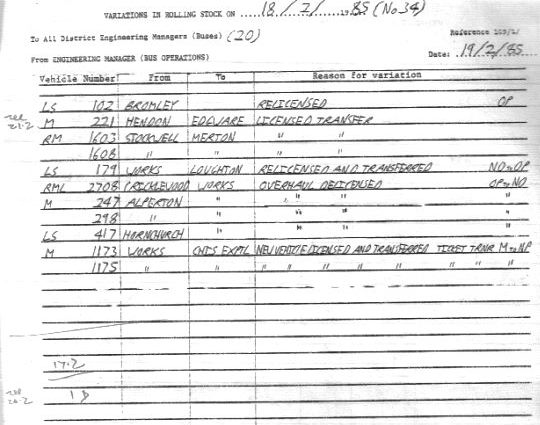 VARIATIONS IN ROLLING STOCK ON 18/2/1985 (No 34)
To All District Engineering Managers (Buses) (20) Reference
From ENGINEERING MANAGER (BUS OPERATIONS) Date: 19/2/85
Vehicle Number From To Reason for variation
LS 102 BROMLEY RELICENSED OP
see 21.2 M 221 HENDON EDGWARE LICENSED TRANSFER
RM 1603 STOCKWELL MERTON " "
1608 " " " "
LS 179 WORKS LOUGHTON RELICENSED AND TRANSFERRED NO to OP
RML 2708 CRICKLEWOOD WORKS OVERHAUL DELICENSED OP to NO
M 247 ALPERTON " " " "
298 " " " " "
LS 417 HORNCHURCH " " " "
M 1173 WORKS CHIS EXPTL NEW VEHICLE LICENSED AND TRANSFERRED TICKET TRNR M to NP
1175 " " " " " " " " " "
17.2
see